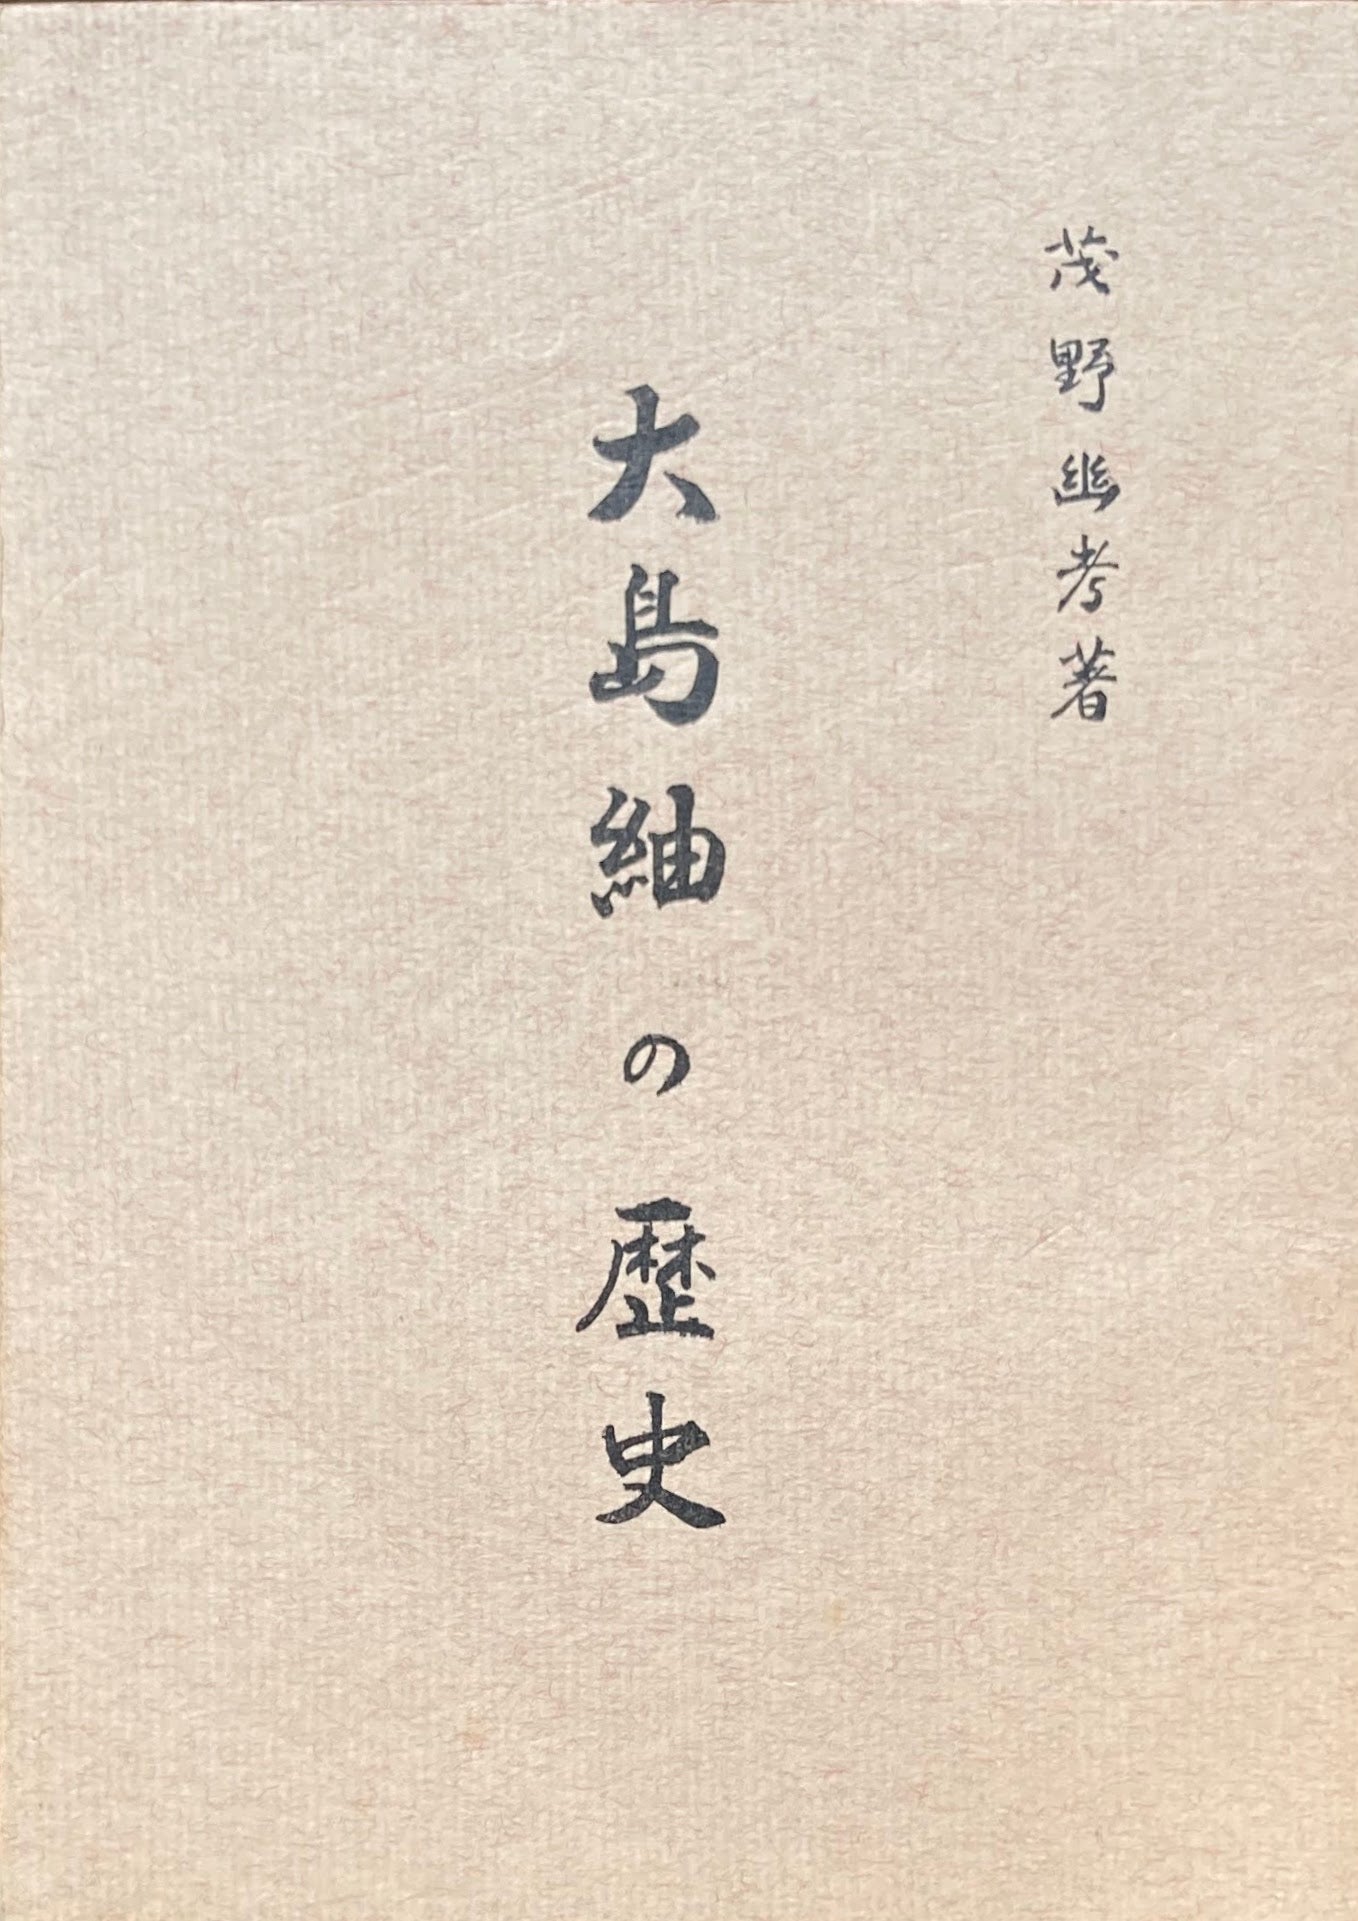 茂野幽考著
大島紬の歴史